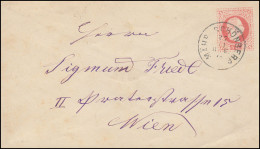 Herrn
Sigmund Friedl
II Praterstrasse 15
Wien